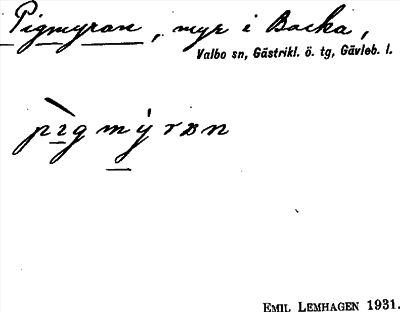 Pigmyran, myr i Backa,
Valbo sn, Gästrikl. ö. tg, Gävleb. l.
pìgmýran
EMIL LEMHAGEN 1931.